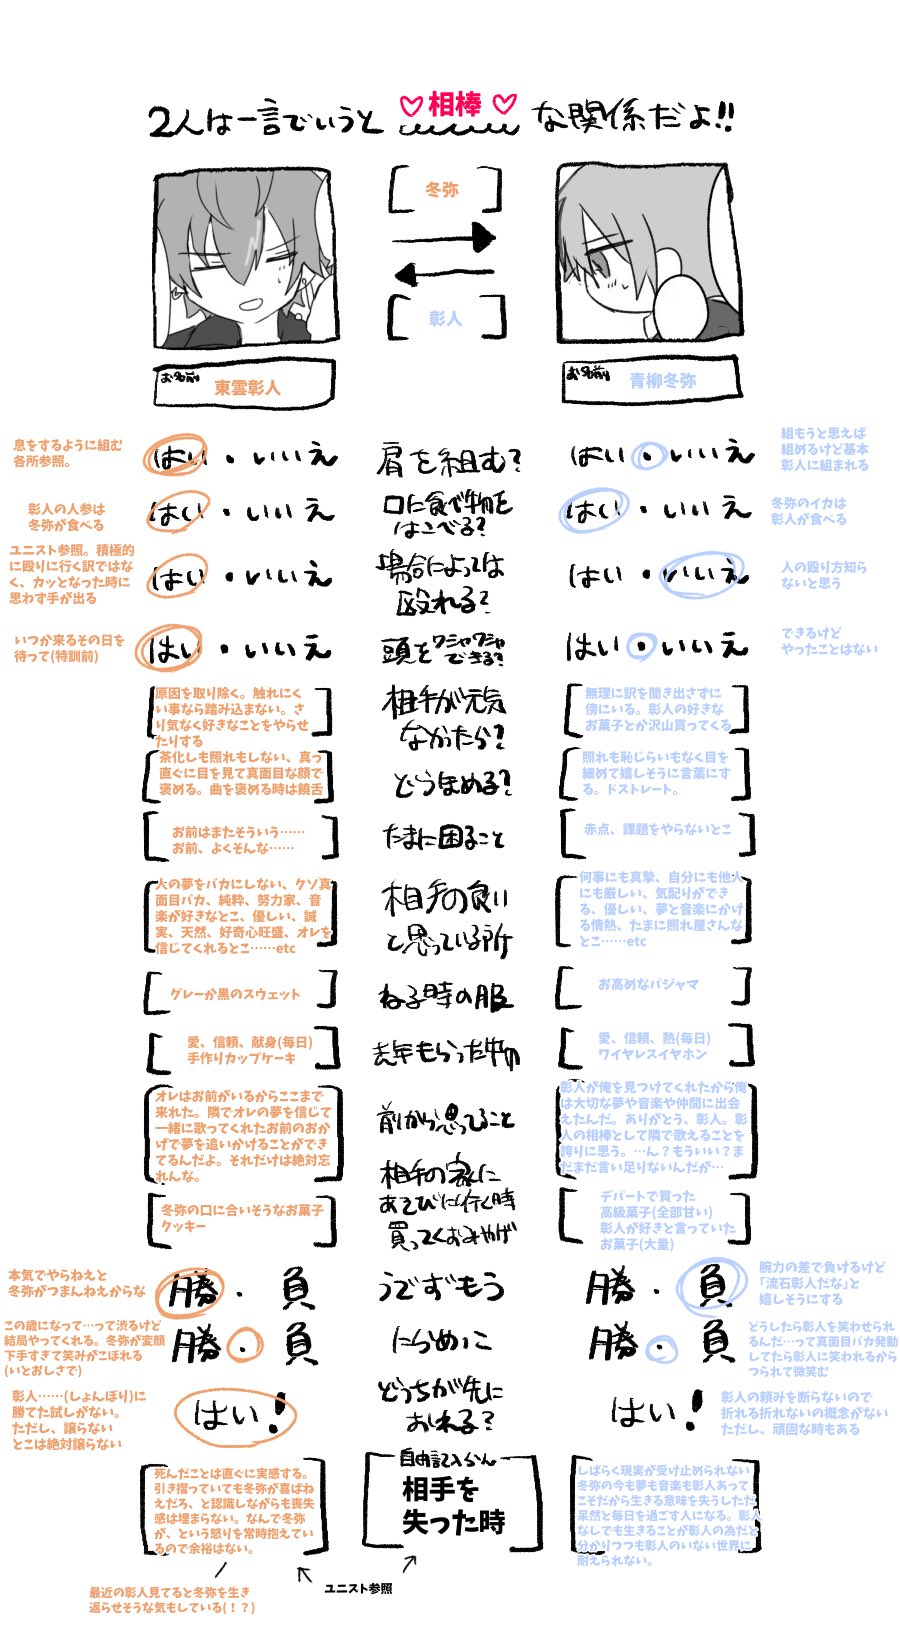 2人は一言でいうと ♡相棒♡ な関係だよ!!
冬弥
彰人
お名前 東雲彰人
お名前 青柳冬弥
息をするように組む
各所参照。
はい・いいえ
肩を組む?
はい・いいえ
組もうと思えば
組めるけど基本
彰人に組まれる
彰人の人参は
冬弥が食べる
はい・いいえ
口に食べ物を
はこべる?
はい・いいえ
冬弥のイカは
彰人が食べる
ユニスト参照。積極的
に殴りに行く訳ではな
く、カッとなった時に
思わず手が出る
はい・いいえ
場合によっては
殴れる?
はい・いいえ
人の殴り方知ら
ないと思う
いつか来るその日を
待って(特訓前)
はい・いいえ
頭をワシャワシャ
できる?
はい・いいえ
できるけど
やったことはない
原因を取り除く。触れにく
い事なら踏み込まない。さ
り気なく好きなことをやらせ
たりする
相手が元気
なかったら?
無理に訳を聞き出さずに
傍にいる。彰人の好きな
お菓子とか沢山買ってくる
茶化しも照れもしない、真っ
直ぐに目を見て真面目な顔で
褒める。曲を褒める時は饒舌
どうほめる?
照れも恥じらいもなく目を
細めて嬉しそうに言葉にす
る。ドストレート。
お前はまたそういう……
お前、よくそんな……
たまに困ること
赤点、課題をやらないとこ
人の夢をバカにしない、クソ真
面目バカ、純粋、努力家、音
楽が好きなとこ、優しい、誠
実、天然、好奇心旺盛、オレを
信じてくれるとこ……etc
相手の良い
と思っている所
何事にも真摯、自分にも他人
にも厳しい、気配りができ
る、優しい、夢と音楽にかけ
る情熱、たまに照れ屋さんな
とこ……etc
グレーか黒のスウェット
ねる時の服
お高めなパジャマ
愛、信頼、献身(毎日)
手作りカップケーキ
去年もらった物
愛、信頼、熱(毎日)
ワイヤレスイヤホン
オレはお前がいるからここまで
来れた。隣でオレの夢を信じて
一緒に歌ってくれたお前のおか
げで夢を追いかけることができ
てるんだよ。それだけは絶対忘
れんな。
前から思ってること
彰人が俺を見つけてくれたから俺
は大切な夢や音楽や仲間に出会
えたんだ。ありがとう、彰人。彰
人の相棒として隣で歌えることを
誇りに思う。…ん?もういい?ま
だまだ言い足りないんだが…
冬弥の口に合いそうなお菓子
クッキー
相手の家に
あそびに行く時
買ってくおみやげ
デパートで買った
高級菓子(全部甘い)
彰人が好きと言っていた
お菓子(大量)
本気でやらねえと
冬弥がつまんねえからな
勝・負
うでずもう
勝・負
腕力の差で負けるけど
「流石彰人だな」と
嬉しそうにする
この歳になって…って渋るけど
結局やってくれる。冬弥が変顔
下手すぎて笑みがこぼれる
(いとおしさで)
勝・負
にらめっこ
勝・負
どうしたら彰人を笑わせられ
るんだ…って真面目バカ発動
してたら彰人に笑われるから
つられて微笑む
彰人……(しょんぼり)に
勝てた試しがない。
ただし、譲らない
とこは絶対譲らない
はい!
どっちが先に
おれる?
はい!
彰人の頼みを断らないので
折れる折れないの概念がない
ただし、頑固な時もある
死んだことは直ぐに実感する。
引き摺っていても冬弥が喜ばね
えだろ、と認識しながらも喪失
感は埋まらない。なんで冬弥
が、という怒りを常時抱えてい
るので余裕はない。
自由記入らん
相手を
失った時
しばらく現実が受け止められない
冬弥の今も夢も音楽も彰人あって
こそだから生きる意味を失うしただ
呆然と毎日を過ごす人になる。彰人
なしでも生きることが彰人の為だと
分かりつつも彰人のいない世界に
耐えられない。
ユニスト参照
最近の彰人見てると冬弥を生き
返らせそうな気もしている(!?)